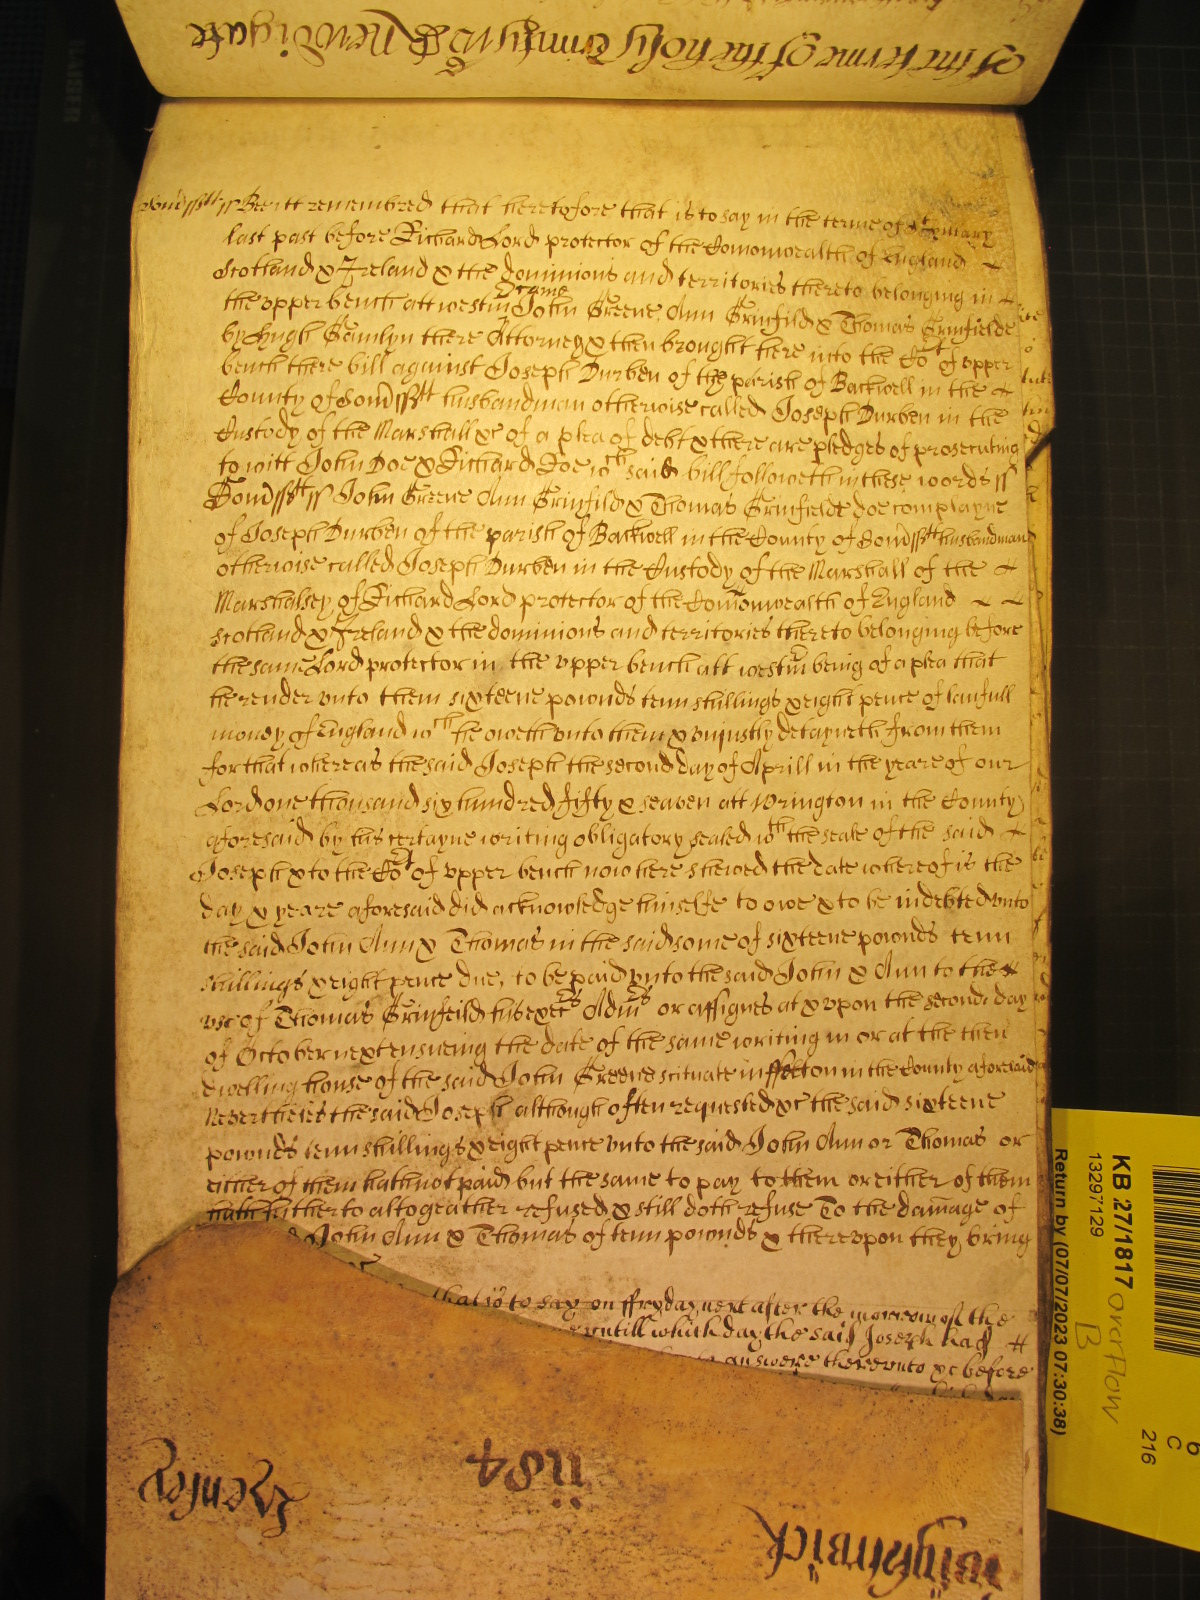 of the terme of the holy Trinity 1659 Newdigate
Somsstt ss Bee itt remembred that heretofore that is to say in the terme of St Hillary
last past before Richard Lord protector of the Comonwealth of England
Scotland & Ireland & the dominions and territories thereto belonging in
the upper bench att westm came John Greene Ann Grinfild & Thomas Grinfielde
by Hugh Gamlyn there Attorney & then brought here into the Cort of upper
bench there bill against Joseph Durben of the parish of Backwell in the
County of Somsstt husbandman otherwise called Joseph Durben in the
Custody of the Marshall &c of a plea of debt & there are pledges of prosecuting
to witt John Doe & Richard Roe wch said bill followeth in these words ss
Somsstt ss John Greene Ann Grinfild & Thomas Grinfielde doe complayne
of Joseph Durben of the parish of Backwell in the County of Somsstt husbandman
otherwise called Joseph Durben in the Custody of the Marshall of the
Marshalsey of Richard Lord protector of the Comonwealth of England
Scotland & Ireland & the dominions and territories thereto belonging before
the same Lord protector in the upper bench att westm being of a plea that
he render unto them sixteene pownds tenn shillings & eight pence of lawfull
money of England wch he oweth unto them & unjustly detayneth from them
for that whereas the said Joseph the second day of Aprill in the yeare of our
Lord one thousand six hundred fifty & seaven att Wrington in the County
aforesaid by his certayne writing obligatory sealed wth the seale of the said
Joseph & to the Cort of upper bench now here shewed the date whereof is the
day & yeare aforesaid did acknowledge himselfe to owe & to be indebted unto
the said John Ann & Thomas in the said some of sixteene pownds tenn
shillings & eight pence due, to be paid unto the said John & Ann to the
use of Thomas Grinfeild his execrs Adms or assignes at & upon the second day
of October next ensueing the date of the same writing in or at the then
dwelling house of the said John Greene scituate in in the County aforesaid
Neverthelës the said Joseph although often requested &c the said sixteene
pownds tenn shillings & eight pence unto the said John Ann or Thomas or
either of them hath not paid but the same to pay to them or either of them
hath hitherto altogeather refused & still doth refuse To the damage of
John Ann & Thomas of tenn pownds & thereupon they bring
that is to say on ffryday next after the morrow of the
untill which day the said Joseph had
to answere thereunto &c before
Henley
1184
Wightwick
KB 27/1817 overflow
13297129
B
Return by (07/07/2023 07:30:38)
6
C
216